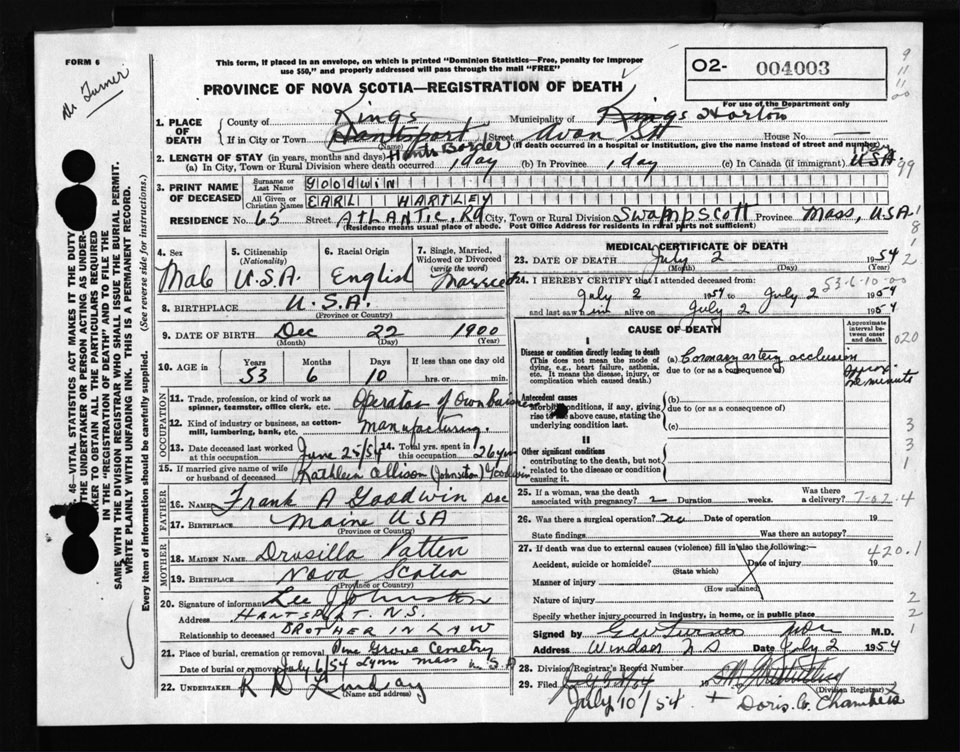 FORM 6
This form, if placed in an envelope, on which is printed "Dominion Statistics—Free, penalty for improper
use $50," and properly addressed will pass through the mail "FREE"
O2- 004003
Dr. Turner
PROVINCE OF NOVA SCOTIA—REGISTRATION OF DEATH
For use of the Department only
1. PLACE OF DEATH
County of Kings Municipality of Kings Horton
If in City or Town Hantsport Street Avon St House No.
(Name) (If death occurred in a hospital or institution, give the name instead of street and number)
Hants Border
2. LENGTH OF STAY (in years, months and days)
(a) In City, Town or Rural Division where death occurred 1 day (b) In Province 1 day (c) In Canada (if immigrant) USA
3. PRINT NAME OF DECEASED
Surname or Last Name GOODWIN
All Given or Christian Names EARL HARTLEY
RESIDENCE No. 65 Street ATLANTIC, Rd City, Town or Rural Division Swampscott Province Mass, U.S.A.
(Residence means usual place of abode. Post Office Address for residents in rural parts not sufficient)
4. Sex Male
5. Citizenship (Nationality) U.S.A.
6. Racial Origin English
7. Single, Married, Widowed or Divorced (write the word) Married
8. BIRTHPLACE U.S.A.
(Province or Country)
9. DATE OF BIRTH Dec 22 1900
(Month) (Day) (Year)
10. AGE in Years 53 Months 6 Days 10 If less than one day old hrs. or min.
OCCUPATION
11. Trade, profession, or kind of work as spinner, teamster, office clerk, etc. Operator of Own Business
12. Kind of industry or business, as cotton-mill, lumbering, bank, etc. Manufacturing.
13. Date deceased last worked at this occupation June 25/54 14. Total yrs. spent in this occupation 26 yrs
15. If married give name of wife or husband of deceased Kathleen Allison (Johnston) Goodwin
FATHER
16. NAME Frank A Goodwin
17. BIRTHPLACE Maine USA
(Province or Country)
MOTHER
18. MAIDEN NAME Drusilla Patten
19. BIRTHPLACE Nova Scotia
(Province or Country)
20. Signature of informant Lee Johnston
Address HANTSPORT N.S.
Relationship to deceased BROTHER IN LAW
21. Place of burial, cremation or removal Pine Grove Cemetery
Date of burial or removal July 6/54 Lynn Mass U.S.A
22. UNDERTAKER R D Lindsay
(Name and address)
MEDICAL CERTIFICATE OF DEATH
23. DATE OF DEATH July 2 1954
(Month) (Day) (Year)
24. I HEREBY CERTIFY that I attended deceased from: 53-6-10-00
July 2 1954 to July 2 1954
and last saw h im alive on July 2 1954
CAUSE OF DEATH
Approximate interval between onset and death
I
Disease or condition directly leading to death
(This does not mean the mode of dying, e.g., heart failure, asthenia, etc. It means the disease, injury, or complication which caused death.)
(a) Coronary artery occlusion
due to (or as a consequence of)
Approx. minutes
020
Antecedent causes
Morbid conditions, if any, giving rise to above cause, stating the underlying condition last.
(b)
due to (or as a consequence of)
(c)
II
Other significant conditions
contributing to the death, but not related to the disease or condition causing it.
25. If a woman, was the death associated with pregnancy? Duration weeks. Was there a delivery?
26. Was there a surgical operation? no Date of operation 19
State findings Was there an autopsy?
27. If death was due to external causes (violence) fill in also the following:—
420.1
Accident, suicide or homicide? Date of injury 19
(State which)
Manner of injury
(How sustained)
Nature of injury
Specify whether injury occurred in industry, in home, or in public place
Signed by G W Turner M.D.
Address Windsor N S Date July 2 1954
28. Division Registrar's Record Number
29. Filed 19
(Division Registrar)
July 10/54 + Doris. C. Chambers
46—VITAL STATISTICS ACT MAKES IT THE DUTY
THE UNDERTAKER OR PERSON ACTING AS UNDER-
KER TO OBTAIN ALL THE PARTICULARS REQUIRED
IN THE "REGISTRATION OF DEATH" AND TO FILE THE
SAME WITH THE DIVISION REGISTRAR WHO SHALL ISSUE THE BURIAL PERMIT.
WRITE PLAINLY WITH UNFADING INK. THIS IS A PERMANENT RECORD.
Every item of information should be carefully supplied. (See reverse side for instructions.)